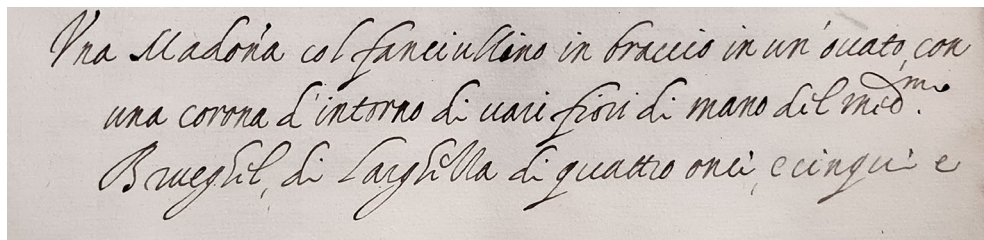 Vna Madon̄a col fanciullino in braccio in un'ouato, con
una corona d'intorno di uari fiori di mano del med.mo
Brueghel, di larghezza di quattro oncie, e cinque e